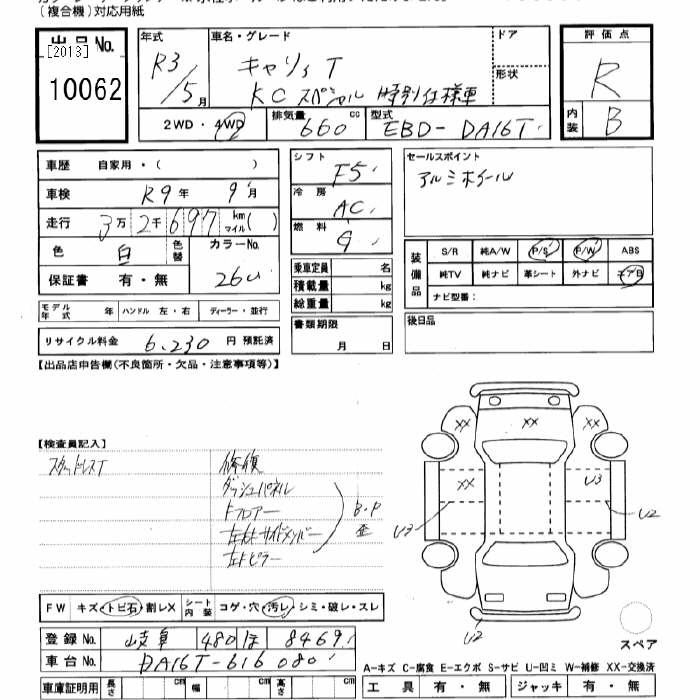 (複合機)対応用紙
出品No.
[2013]
10062
年式 車名・グレード ドア 評価点
R3/5月 キャリィT
KCスペシャル 特別仕様車
形状
R
2WD・4WD 排気量 660 cc 型式 EBD-DA16T
内装 B
車歴 自家用・( )
シフト F5
セールスポイント
アルミホイール
車検 R9年 9月
冷房 AC
走行 3万2千697 km マイル( )
燃料 G
色 白 色替 カラーNo. 26U
装備品 S/R 純A/W P/S P/W ABS
純TV 純ナビ 革シート 外ナビ エアB
ナビ型番:
保証書 有・無
乗車定員 名
積載量 kg
総重量 kg
モデル年式 年 ハンドル 左・右 ディーラー・並行
書類期限 月 日
後日品
リサイクル料金 6,230 円 預託済
【出品店申告欄(不良箇所・欠品・注意事項等)】
【検査員記入】
スタッドレスT
修復
ダッシュパネル
Fフロアー
左右Fサイドメンバー
左Fピラー
B.P 歪
XX XX XX
XX U3
U3 U2
U2
スペア
FW キズ・トビ石・割レX シート内装 コゲ・穴・汚レ・シミ・破レ・スレ
登録No. 岐阜 480 ほ 8469
車台No. DA16T-616080
A-キズ C-腐食 E-エクボ S-サビ U-凹ミ W-補修 XX-交換済
車庫証明用 長さ cm 幅 cm 高さ cm
工具 有・無 ジャッキ 有・無